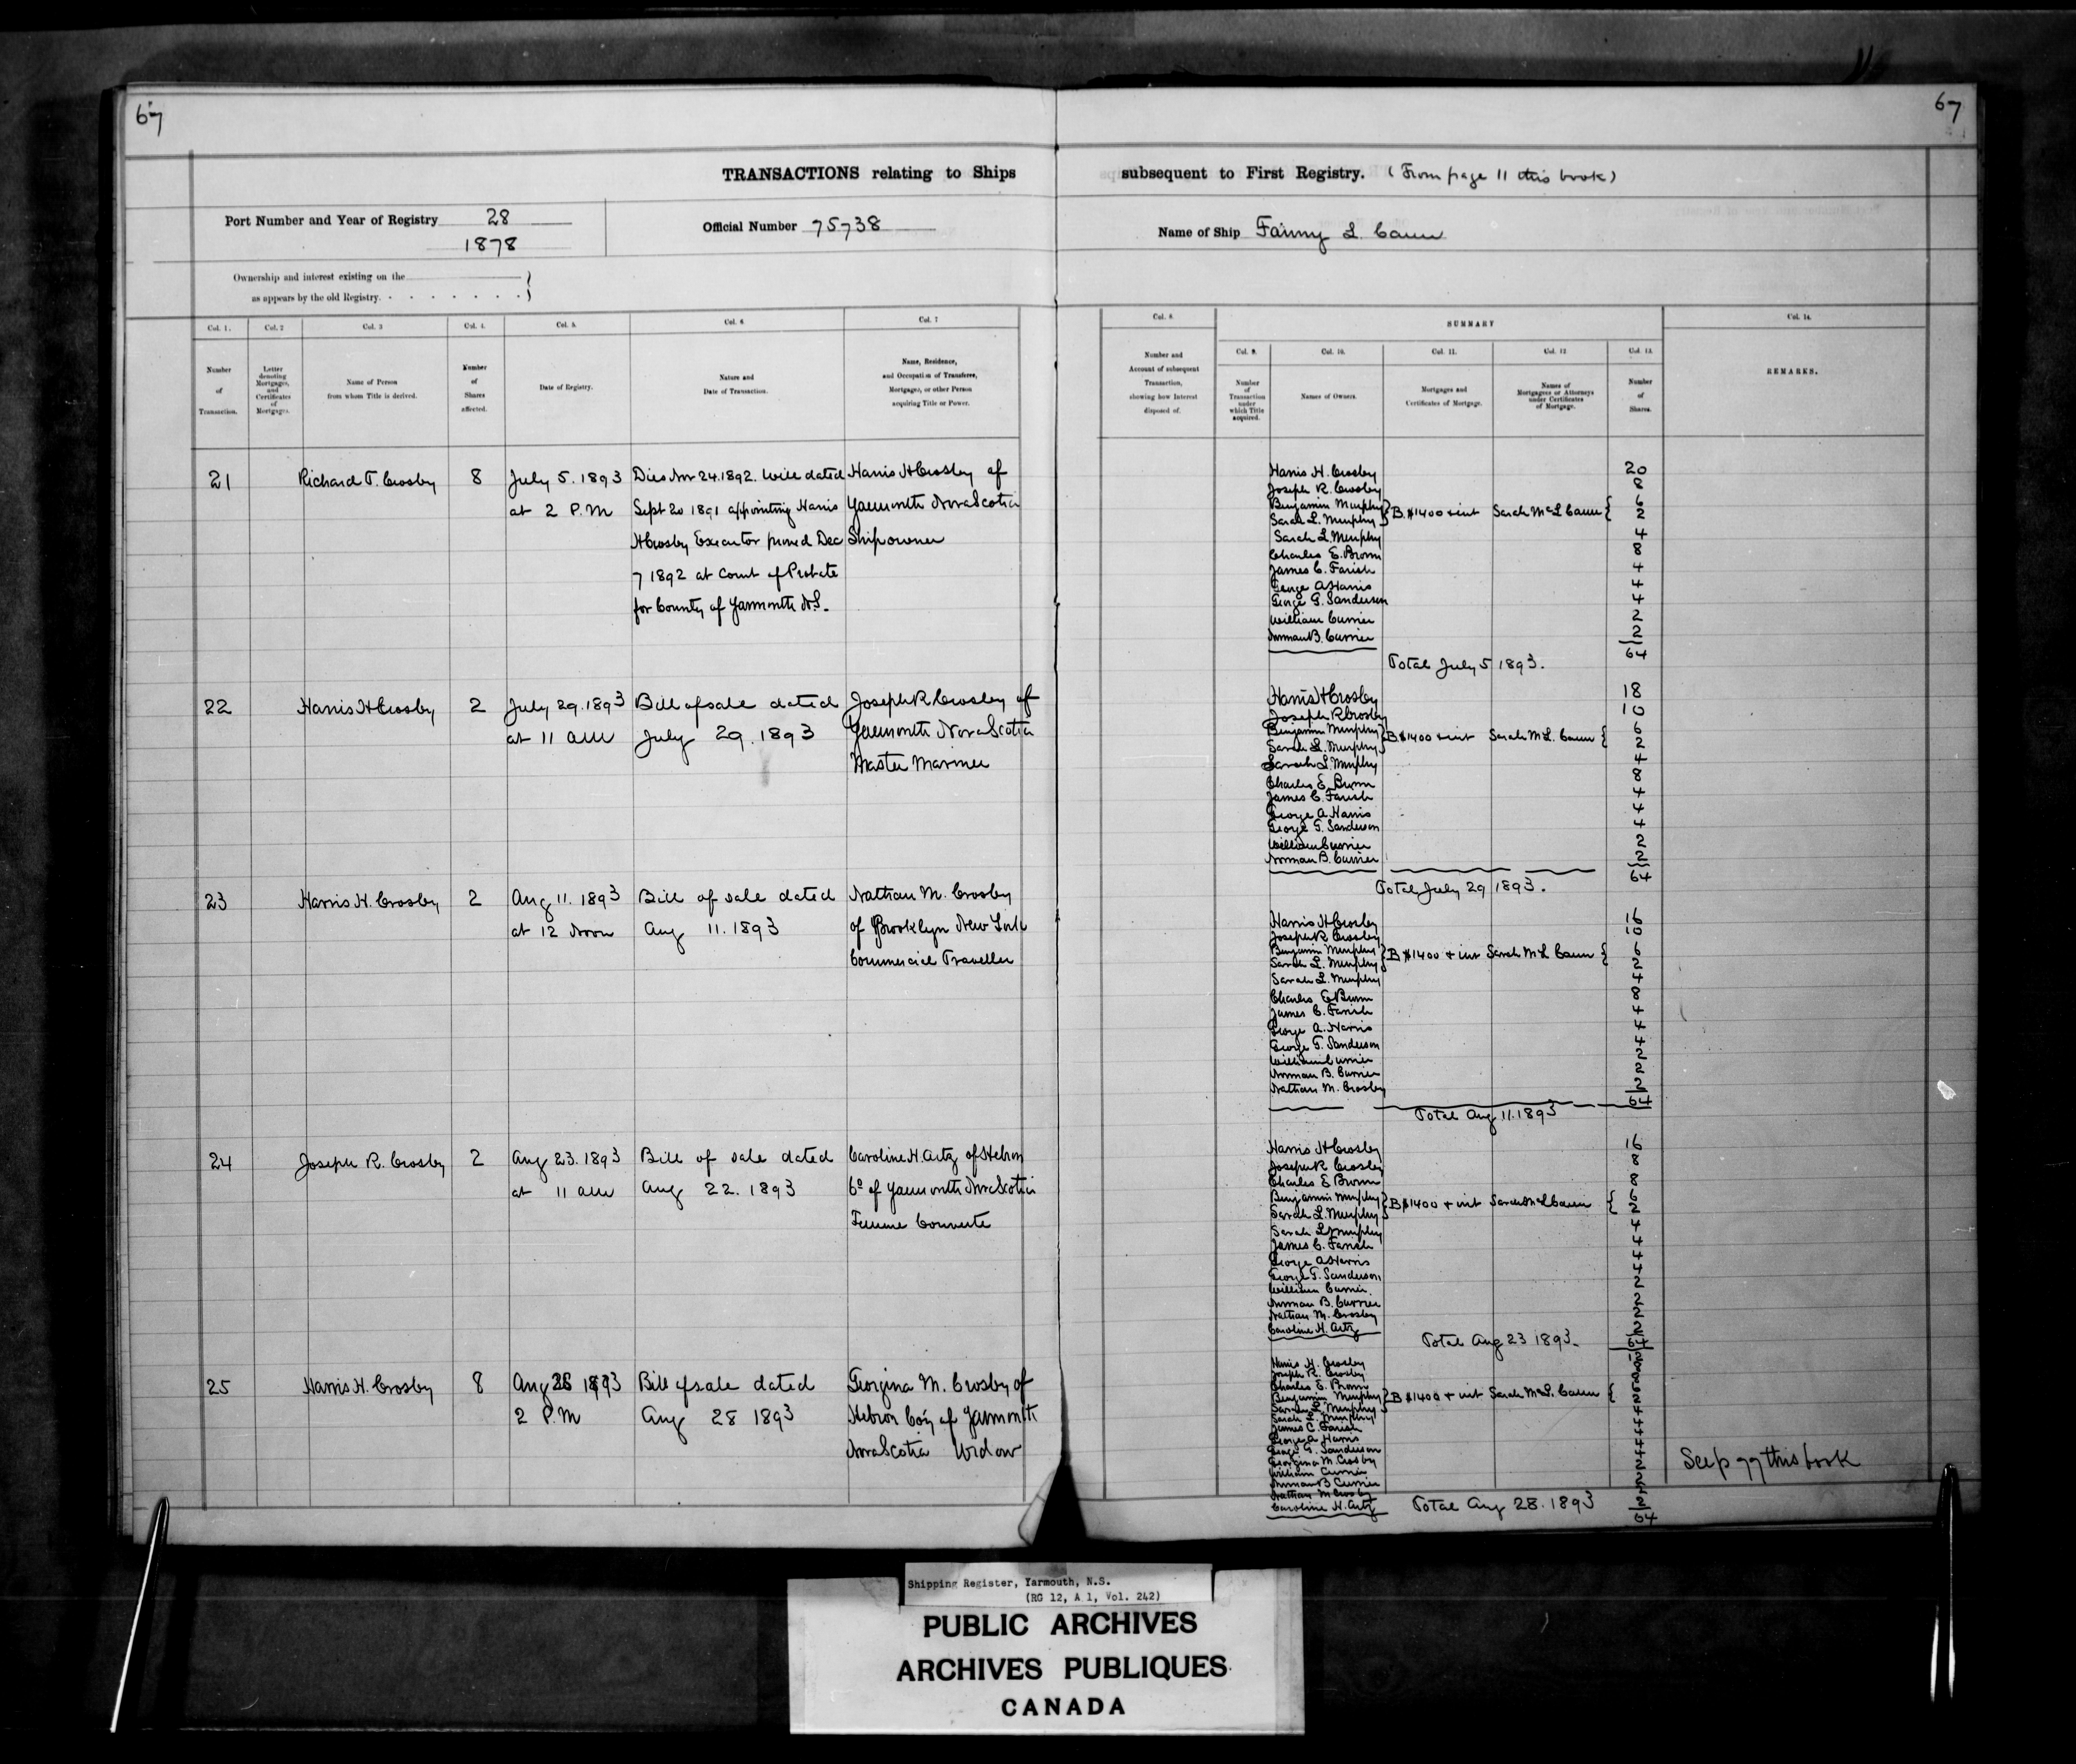 67
67
TRANSACTIONS relating to Ships
subsequent to First Registry. (From page 11 this book)
Port Number and Year of Registry 28
1878
Official Number 75738
Name of Ship Fanny L. Cann
Ownership and interest existing on the
as appears by the old Registry.
Col. 1.
Col. 2
Col. 3
Col. 4.
Col. 5.
Col. 6.
Col. 7
Col. 8.
SUMMARY
Col. 14.
Col. 9.
Col. 10.
Col. 11.
Col. 12
Col. 13.
Number
of
Transaction.
Letter
denoting
Mortgages,
and
Certificates
of
Mortgages.
Name of Person
from whom Title is derived.
Number
of
Shares
affected.
Date of Registry.
Nature and
Date of Transaction.
Name, Residence,
and Occupation of Transferee,
Mortgagee, or other Person
acquiring Title or Power.
Number and
Account of subsequent
Transaction,
showing how Interest
disposed of.
Number
of
Transaction
under
which Title
acquired.
Names of Owners.
Mortgages and
Certificates of Mortgage.
Names of
Mortgagees or Attorneys
under Certificates
of Mortgage.
Number
of
Shares.
REMARKS.
21
Richard T. Crosby
8
July 5. 1893
at 2 P.M
Dies Nov 24. 1892. Will dated
Sept 20 1891 appointing Harris
H Crosby Executor proved Dec
7 1892 at Court of Probate
for County of Yarmouth N.S.
Harris H Crosby of
Yarmouth Nova Scotia
Ship owner
Harris H. Crosby 20
Joseph R. Crosby 8
Benjamin Murphy 6
Sarah L. Murphy } B. $1400 + int Sarah McL Cann { 2
Sarah L. Murphy 4
Charles E. Brown 8
James C. Farish 4
George A Harris 4
George G. Sanderson 4
William Currier 2
Norman B. Currier 2
64
Total July 5 1893.
22
Harris H Crosby
2
July 29. 1893
at 11 am
Bill of sale dated
July 29. 1893
Joseph R Crosby of
Yarmouth Nova Scotia
Master Mariner
Harris H Crosby 18
Joseph R Crosby 10
Benjamin Murphy 6
Sarah L. Murphy } B. $1400 + int Sarah McL. Cann { 2
Sarah L. Murphy 4
Charles E. Brown 8
James C. Farish 4
George A Harris 4
George G. Sanderson 4
William Currier 2
Norman B. Currier 2
64
Total July 29 1893.
23
Harris H. Crosby
2
Aug 11. 1893
at 12 Noon
Bill of sale dated
Aug 11. 1893
Nathan M. Crosby
of Brooklyn New York
Commercial Traveller
Harris H Crosby 16
Joseph R Crosby 10
Benjamin Murphy 6
Sarah L. Murphy } B $1400 + int Sarah McL Cann { 2
Sarah L. Murphy 4
Charles E Brown 8
James C. Farish 4
George A. Harris 4
George G. Sanderson 4
William Currier 2
Norman B. Currier 2
Nathan M. Crosby 2
64
Total Aug 11. 1893
24
Joseph R. Crosby
2
Aug 23. 1893
at 11 am
Bill of sale dated
Aug 22. 1893
Caroline H. Artz of Hebron
Co of Yarmouth Nova Scotia
Femme Couverte
Harris H Crosby 16
Joseph R Crosby 8
Charles E Brown 8
Benjamin Murphy 6
Sarah L. Murphy } B $1400 + int Sarah McL Cann { 2
Sarah L Murphy 4
James C. Farish 4
George A Harris 4
George G. Sanderson 4
William Currier. 2
Norman B. Currier 2
Nathan M. Crosby 2
Caroline H. Artz 2
64
Total Aug 23 1893.
25
Harris H. Crosby
8
Aug 28 1893
2 P.M
Bill of sale dated
Aug 28 1893
Georgina M. Crosby of
Hebron Coy of Yarmouth
Nova Scotia Widow
Harris H. Crosby
Joseph R. Crosby
Charles E. Brown
Benjamin Murphy
Sarah L. Murphy } B $1400 + int Sarah McL. Cann {
Sarah L. Murphy
James C. Farish
George A Harris
George G. Sanderson
Georgina M. Crosby
William Currier
Norman B Currier
Nathan M Crosby
Caroline H. Artz 2
64
Total Aug 28. 1893
See p 77 this book
Shipping Register, Yarmouth, N.S.
(RG 12, A 1, Vol. 242)
PUBLIC ARCHIVES
ARCHIVES PUBLIQUES
CANADA